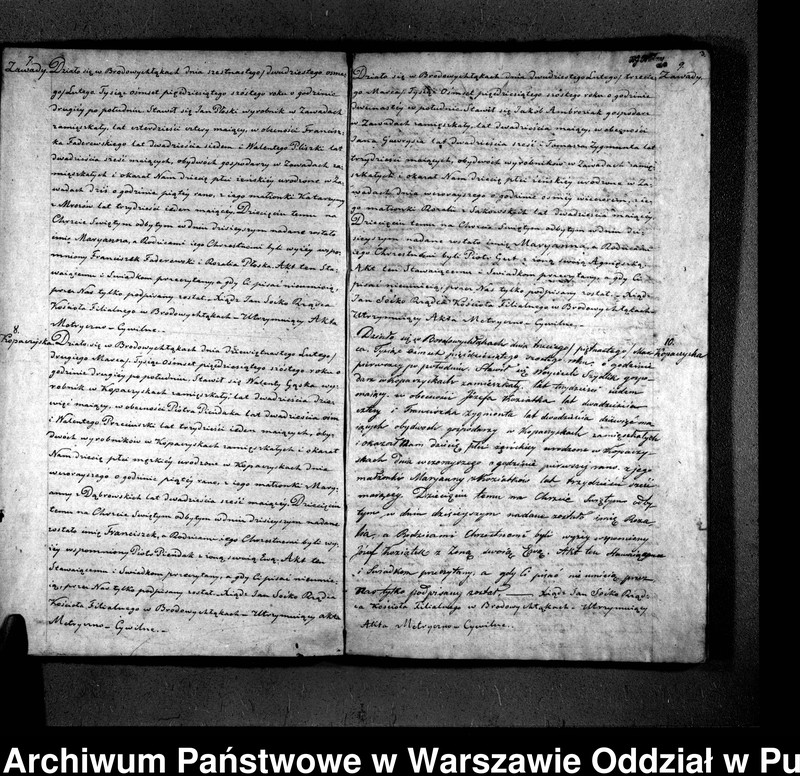 7.
Zawady.
Działo się w Brodowychłąkach dnia szesnastego/dwudziestego ósme-
go/Lutego Tysiąc ośmset pięćdziesiątego szóstego roku o godzinie
drugiéy po południu. Stawił się Jan Pliski wyrobnik w Zawadach
zamięszkały, lat czterdzieści cztery maiący, w obecności Francisz-
ka Faderewskiego lat dwadzieścia siedem i Walentego Pliszki lat
dwadzieścia sześć maiących, obydwóch gospodarzy w Zawadach za-
mięszkałych i okazał Nam dziecię płci żeńskiéy urodzone w Za-
wadach dziś o godzinie piątéy rano, z iego małżonki Katarzyny
z Mrozów lat trzydzieści ieden maiącéy. Dziecięciu temu na
Chrzcie Świętym odbytym w dniu dzisieyszym nadane zostało
imię Maryanna, a Rodzicami iego Chrzestnemi byli wyżéy wspo-
mniony Franciszek Faderewski i Rozalia Pliska. Akt ten Sta-
waiącemu i Świadkom przeczytany, a gdy Ci pisać nieumieią,
przez Nas tylko podpisany został. Xiądz Jan Sońko Rządca
Kościoła Filialnego w Brodowychłąkach – Utrzymuiący Akta
Metryczno – Cywilne. –
8.
Kopaczyska.
Działo się w Brodowychłąkach dnia dziewiętnastego Lutego/
drugiego Marca/Tysiąc Ośmset pięćdziesiątego szóstego roku o
godzinie drugiéy po południu. Stawił się Walenty Gąska wy-
robnik w Kopaczyskach zamięszkały, lat dwadzieścia dzie-
więć maiący, w obecności Piotra Pieńdaka lat dwadzieścia ośm
i Walentego lat trzydzieści ieden maiących, oby-
dwóch wyrobników w Kopaczyskach zamięszkałych i okazał
Nam dziecię płci męzkiéy urodzone w Kopaczyskach dnia
wczorayszego o godzinie piątéy rano, z iego małżonki Mary-
anny z Dąbrowskich lat dwadzieścia sześć maiącéy. Dziecięciu
temu na Chrzcie Świętym odbytym w dniu dzisieyszym nadane
zostało imię Franciszek, a Rodzicami iego Chrzestnemi byli wy-
żéy wspomniony Piotr Pieńdak i żoną swoią Ewą. Akt ten
Stawaiącemu i Świadkom przeczytany, a gdy Ci pisać nieumie-
ią, przez Nas tylko podpisany został. Xiądz Jan Sońko Rządca
Kościoła Filialnego w Brodowychłąkach – Utrzymuiący akta
Metryczno – Cywilne. –
9.
Zawady.
Działo się w Brodowychłąkach dnia dwudziestego Lutego/trzecie-
go Marca/Tysiąc Ośmset pięćdziesiątego szóstego roku o godzinie
dwunastéy w południe. Stawił się Jakób Ambroziak gospodarz
w Zawadach zamięszkały, lat dwadzieścia maiący, w obecności
Jana Gawrysia lat dwadzieścia sześć i Tomasza Zygmunta lat
trzydzieści maiących, obydwóch wyrobników w Zawadach zamię-
szkałych i okazał Nam dziecię płci żeńskiéy urodzone w Za-
wadach dnia wczorayszego o godzinie ósméy wieczorem, z ie-
go małżonki Rozalii z lat dwadzieścia maiącéy.
Dziecięciu temu na Chrzcie Świętym odbytym w dniu dzi-
sieyszym nadane zostało imię Maryanna, a Rodzicami
iego Chrzestnemi byli Piotr z żoną swoią Agnieszką.
Akt ten Stawaiącemu i Świadkom przeczytany, a gdy Ci
pisać nieumieią, przez Nas tylko podpisany został – Xiądz
Jan Sońko Rządca Kościoła Filialnego w Brodowychłąkach –
Utrzymuiący Akta Metryczno – Cywilne. –
10.
Kopaczyska
Działo się w Brodowychłąkach dnia trzeciego/piętnastego/Mar-
ca, Tysiąc ośmset pięćdziesiątego szóstego roku, o godzinie
pierwszéy po południu. Stawił się Woyciech Szyszka gospo-
darz w Kopaczyskach zamięszkały, lat trzydzieści ieden
maiący, w obecności Józefa Koziatka lat dwadzieścia
cztery i Franciszka Zygmunta lat dwadzieścia dziewięć ma-
iących, obydwóch gospodarzy w Kopaczyskach zamięszkałych
i okazał Nam dziecię płci żeńskiéy urodzone w Kopaczy-
skach dnia wczorayszego o godzinie pierwszéy rano, z jego
małżonki Maryanny z Koziatków lat trzydzieści sześć
maiącéy. Dziecięciu temu na Chrzcie Świętym odby-
tym w dniu dzisieyszym nadane zostało imię Roza-
lia, a Rodzicami Chrzestnemi byli wyżéy wspomniony
Józef Koziatek z Żoną swoią Ewą. Akt ten Stawaiącemu
i Świadkom przeczytany, a gdy Ci pisać nie umieią, przez
Nas tylko podpisany został. — Xiądz Jan Sońko Rząd-
ca Kościoła Filialnego w Brodowychłąkach – Utrzymuiący
Akta Metryczno – Cywilne. –
Archiwum Państwowe w Warszawie Oddział w Pu